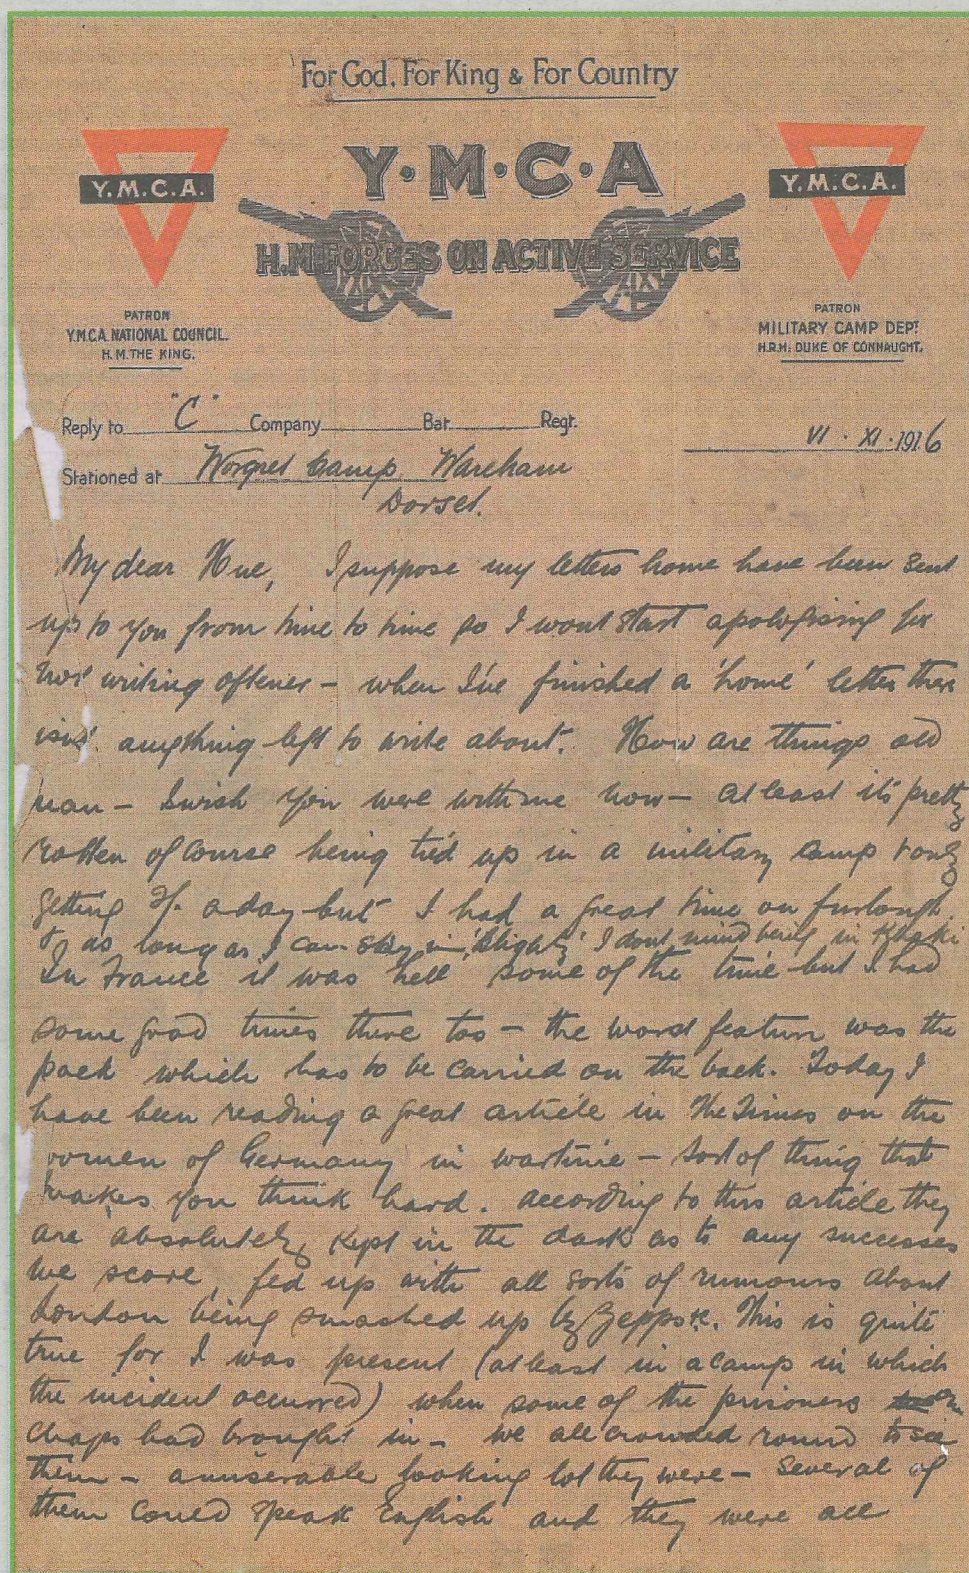 For God, For King & For Country
Y.M.C.A.
Y·M·C·A
Y.M.C.A.
H.M. FORCES ON ACTIVE SERVICE
PATRON
Y.M.C.A. NATIONAL COUNCIL.
H.M. THE KING.
PATRON
MILITARY CAMP DEPT.
H.R.H. DUKE OF CONNAUGHT.
Reply to "C" Company Bat. Regt.
VI · XI · 1916
Stationed at Worgret Camp Wareham
Dorset.
My dear Hue, I suppose my letters home have been sent
up to you from time to time so I wont start apologising for
not writing oftener – when I've finished a 'home' letter there
isn't anything left to write about. How are things old
man – I wish you were with me now – at least it's pretty
rotten of course being tied up in a military camp & only
getting 1/- a day but I had a great time on furlough
& as long as I can stay in 'Blighty' I dont mind being in Khaki
In France it was hell some of the time but I had
some good times there too – the worst feature was the
pack which has to be carried on the back. Today I
have been reading a great article in The Times on the
women of Germany in wartime – sort of thing that
makes you think hard. According to this article they
are absolutely kept in the dark as to any successes
we score, fed up with all sorts of rumours about
London being smashed up by Zepps &c. This is quite
true for I was present (at least in a camp in which
the incident occurred) when some of the prisoners our
chaps had brought in – we all crowded round to see
them – a miserable looking lot they were – several of
them could speak English and they were all